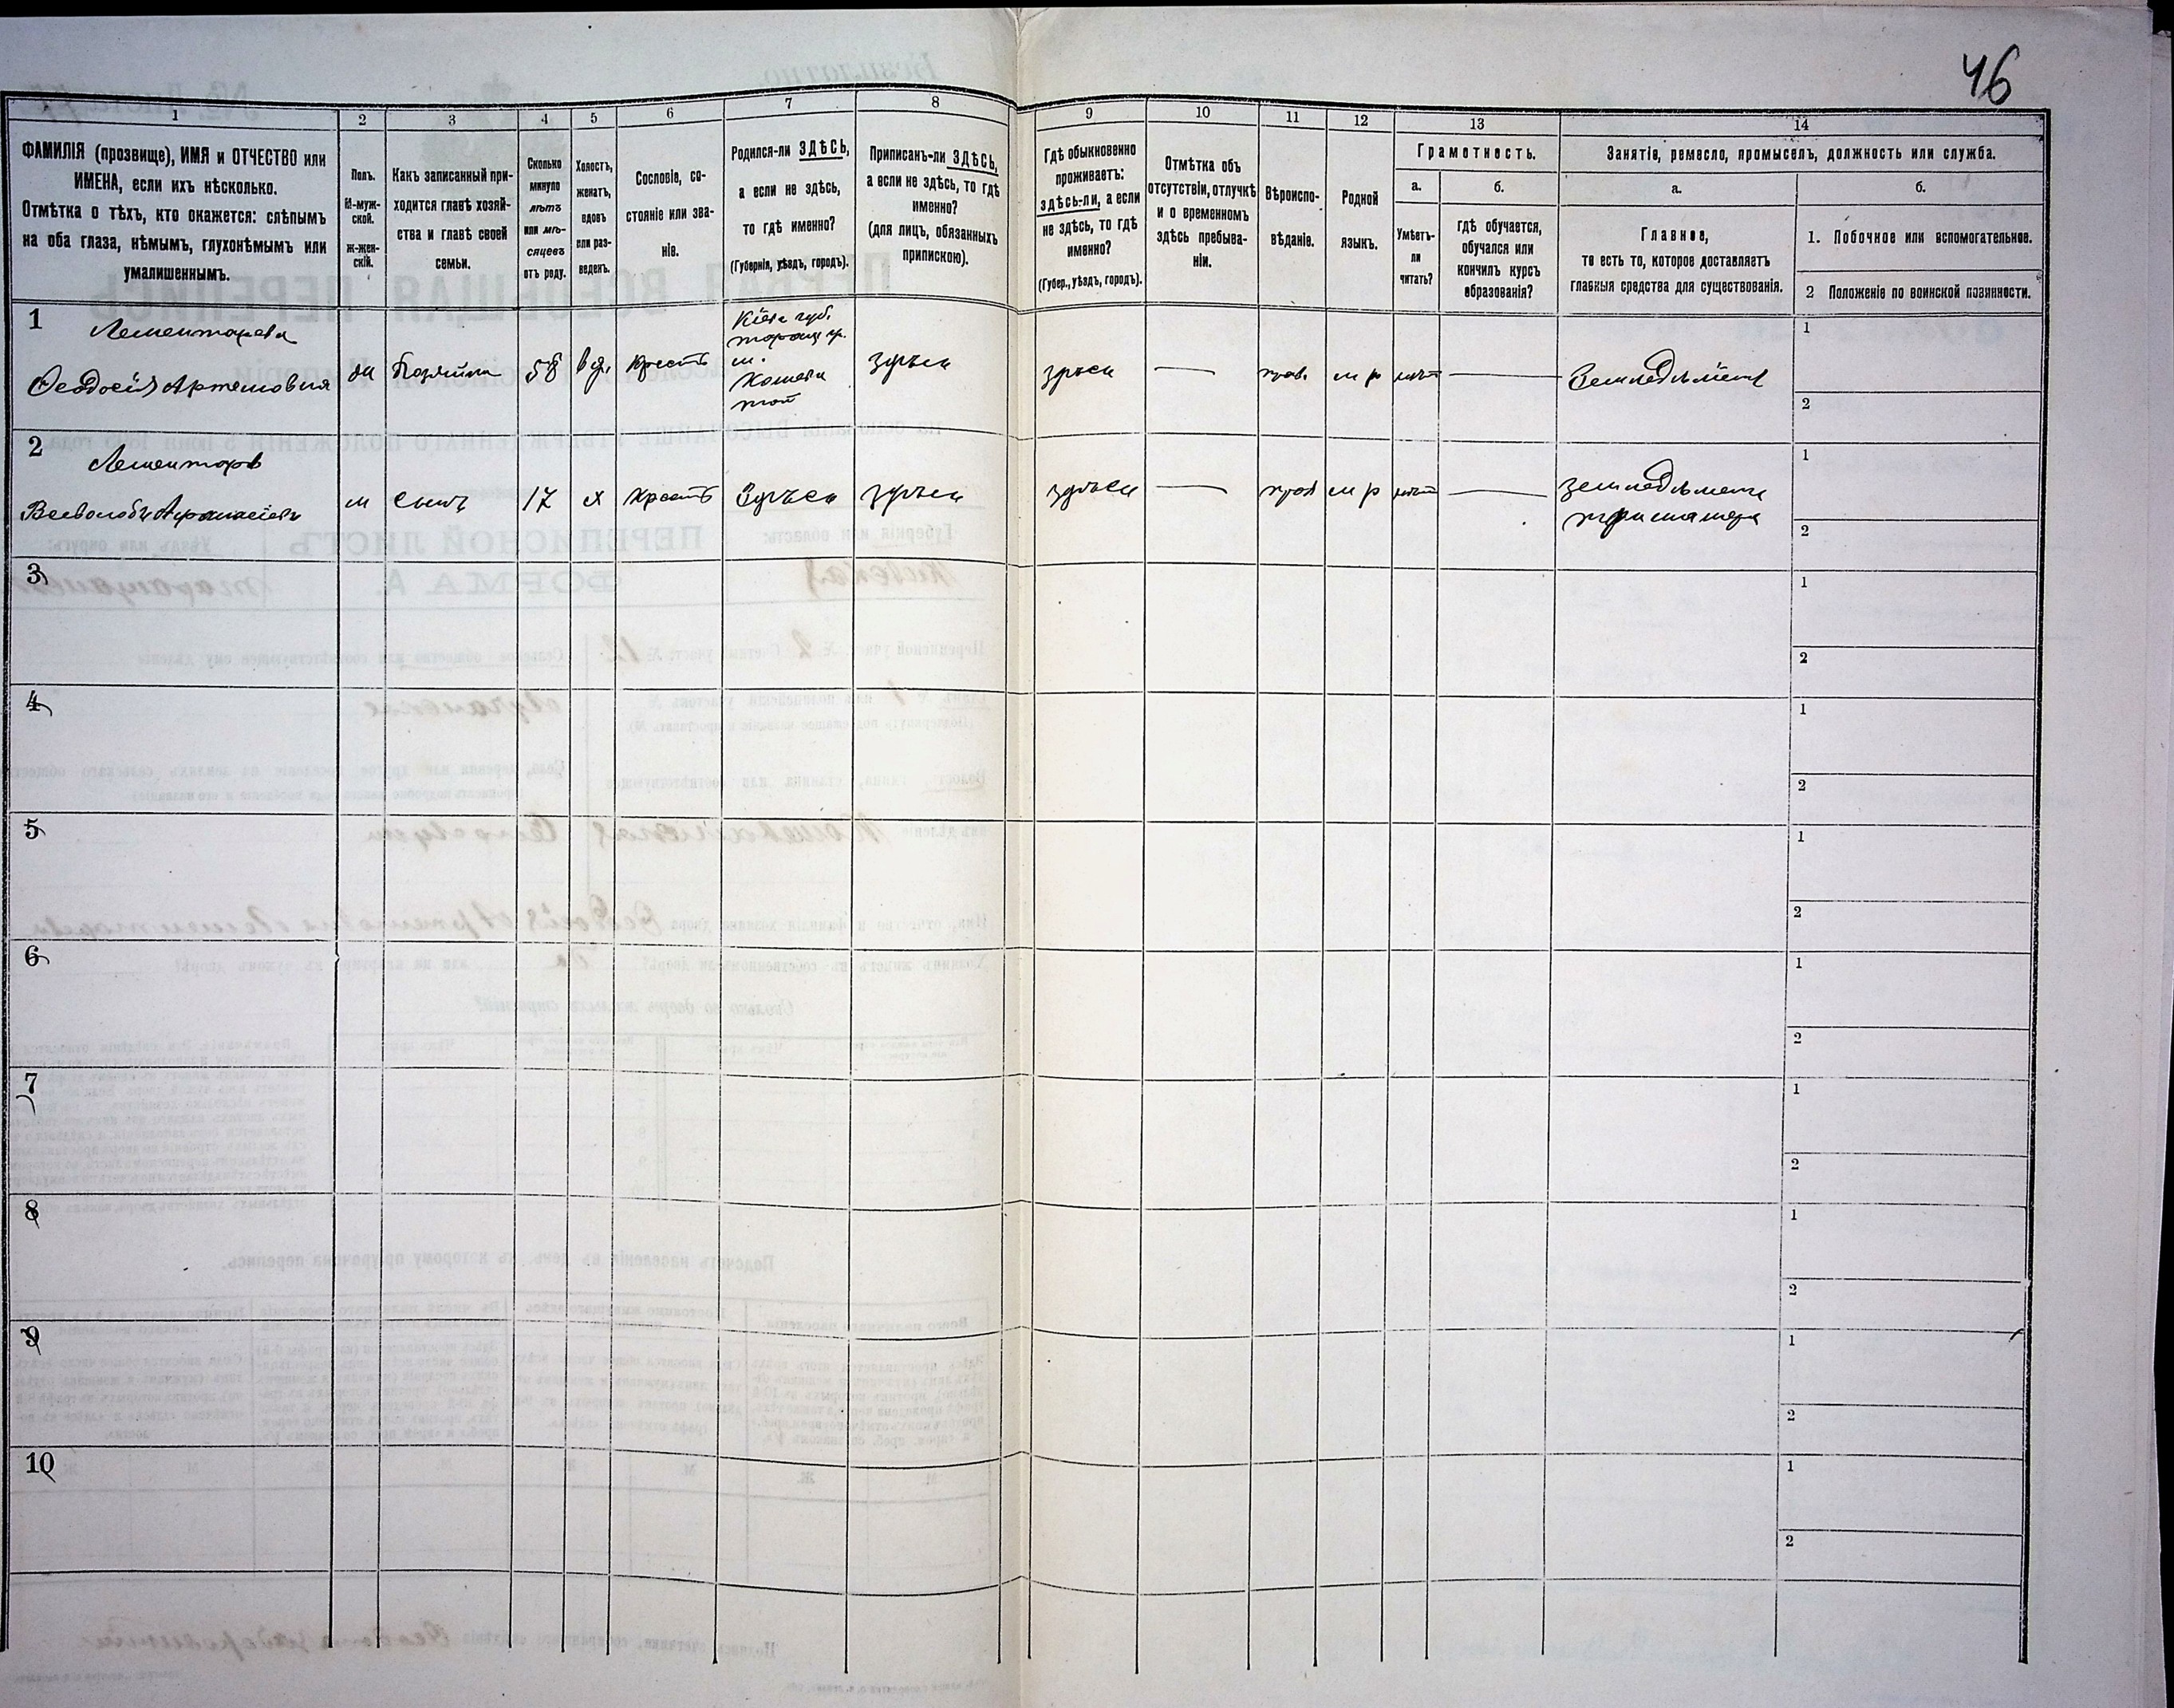 46
1 2 3 4 5 6 7 8 9 10 11 12 13 14
ФАМИЛІЯ (прозвище), ИМЯ и ОТЧЕСТВО или
ИМЕНА, если ихъ нѣсколько.
Отмѣтка о тѣхъ, кто окажется: слѣпымъ
на оба глаза, нѣмымъ, глухонѣмымъ или
умалишеннымъ.
Полъ.
М-муж-
ской.
Ж-жен-
скій.
Какъ записанный при-
ходится главѣ хозяй-
ства и главѣ своей
семьи.
Сколько
минуло
лѣтъ
или мѣ-
сяцевъ
отъ роду.
Холостъ,
женатъ,
вдовъ
или раз-
веденъ.
Сословіе, со-
стояніе или зва-
ніе.
Родился-ли ЗДѢСЬ,
а если не здѣсь,
то гдѣ именно?
(Губернія, уѣздъ, городъ).
Приписанъ-ли ЗДѢСЬ,
а если не здѣсь, то гдѣ
именно?
(для лицъ, обязанныхъ
припискою).
Гдѣ обыкновенно
проживаетъ:
здѣсь-ли, а если
не здѣсь, то гдѣ
именно?
(Губер., уѣздъ, городъ).
Отмѣтка объ
отсутствіи, отлучкѣ
и о временномъ
здѣсь пребыва-
ніи.
Вѣроиспо-
вѣданіе.
Родной
языкъ.
Грамотность.
а.
Умѣетъ-
ли
читать?
б.
гдѣ обучается,
обучался или
кончилъ курсъ
образованія?
Занятіе, ремесло, промыселъ, должность или служба.
а.
Главное,
то есть то, которое доставляетъ
главныя средства для существованія.
б.
1. Побочное или вспомогательное.
2 Положеніе по воинской повинности.
1
Лементарева
Феодосія Артемовна
Хозяйка
58
вд.
крест
Кіев губ.
таращ у.
м.
здѣсь
здѣсь
—
прав.
м р
нѣт
—
Земледѣліе
1
2
2
Лементаров
м
сынъ
17
х
крест
Здѣсь
здѣсь
здѣсь
—
прав
м р
нѣт
—
1
2
3
1
2
4
1
2
5
1
2
6
1
2
7
1
2
8
1
2
9
1
2
10
1
2